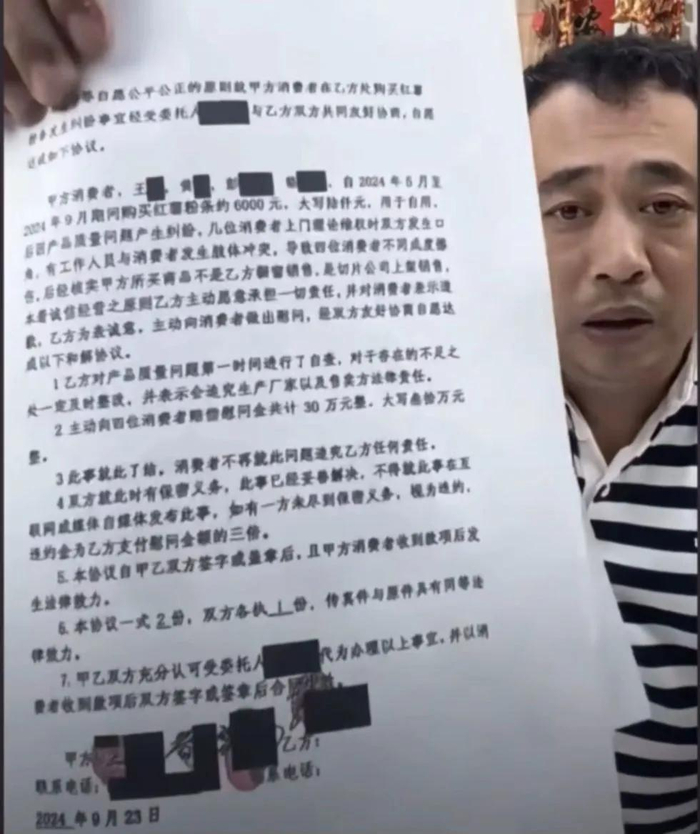 等自愿公平公正的原则就甲方消费者在乙方处购买红薯
粉条发生纠纷事宜经受委托人 与乙方双方共同友好协商，自愿
达成如下协议。
甲方消费者，王 ，黄 ，彭 ， ，自2024年5月至
2024年9月期间购买红薯粉条约6000元，大写陆仟元，用于自用，
后因产品质量问题产生纠纷，几位消费者上门理论维权时双方发生口
角，有工作人员与消费者发生肢体冲突，导致四位消费者不同成度播
伤，后经核实甲方所买商品不是乙方橱窗销售，是切片公司上架销售，
本着诚信经营之原则乙方主动愿意承担一切责任，并对消费者表示道
歉，乙方为表诚意，主动向消费者做出慰问，经双方友好协商自愿达
成以下和解协议。
1乙方对产品质量问题第一时间进行了自查，对于存在的不足之
处一定及时整改，并表示会追究生产厂家以及售卖方法律责任。
2主动向四位消费者赔偿慰问金共计30万元整，大写叁拾万元
整。
3此事就此了结，消费者不再就此问题追究乙方任何责任。
4双方就此时有保密义务，此事已经妥善解决，不得就此事在互
联网或媒体自媒体发布此事，如有一方未尽到保密义务，视为违约，
违约金为乙方支付慰问金额的三倍。
5.本协议自甲乙双方签字或盖章后，且甲方消费者收到款项后发
生法律效力。
6.本协议一式2份，双方各执1份，传真件与原件具有同等法
律效力。
7.甲乙双方充分认可受委托人 代为办理以上事宜，并以消
费者收到款项后双方签字或签章后合
甲方 乙方：
联系电话： 联系电话：
2024年9月23日